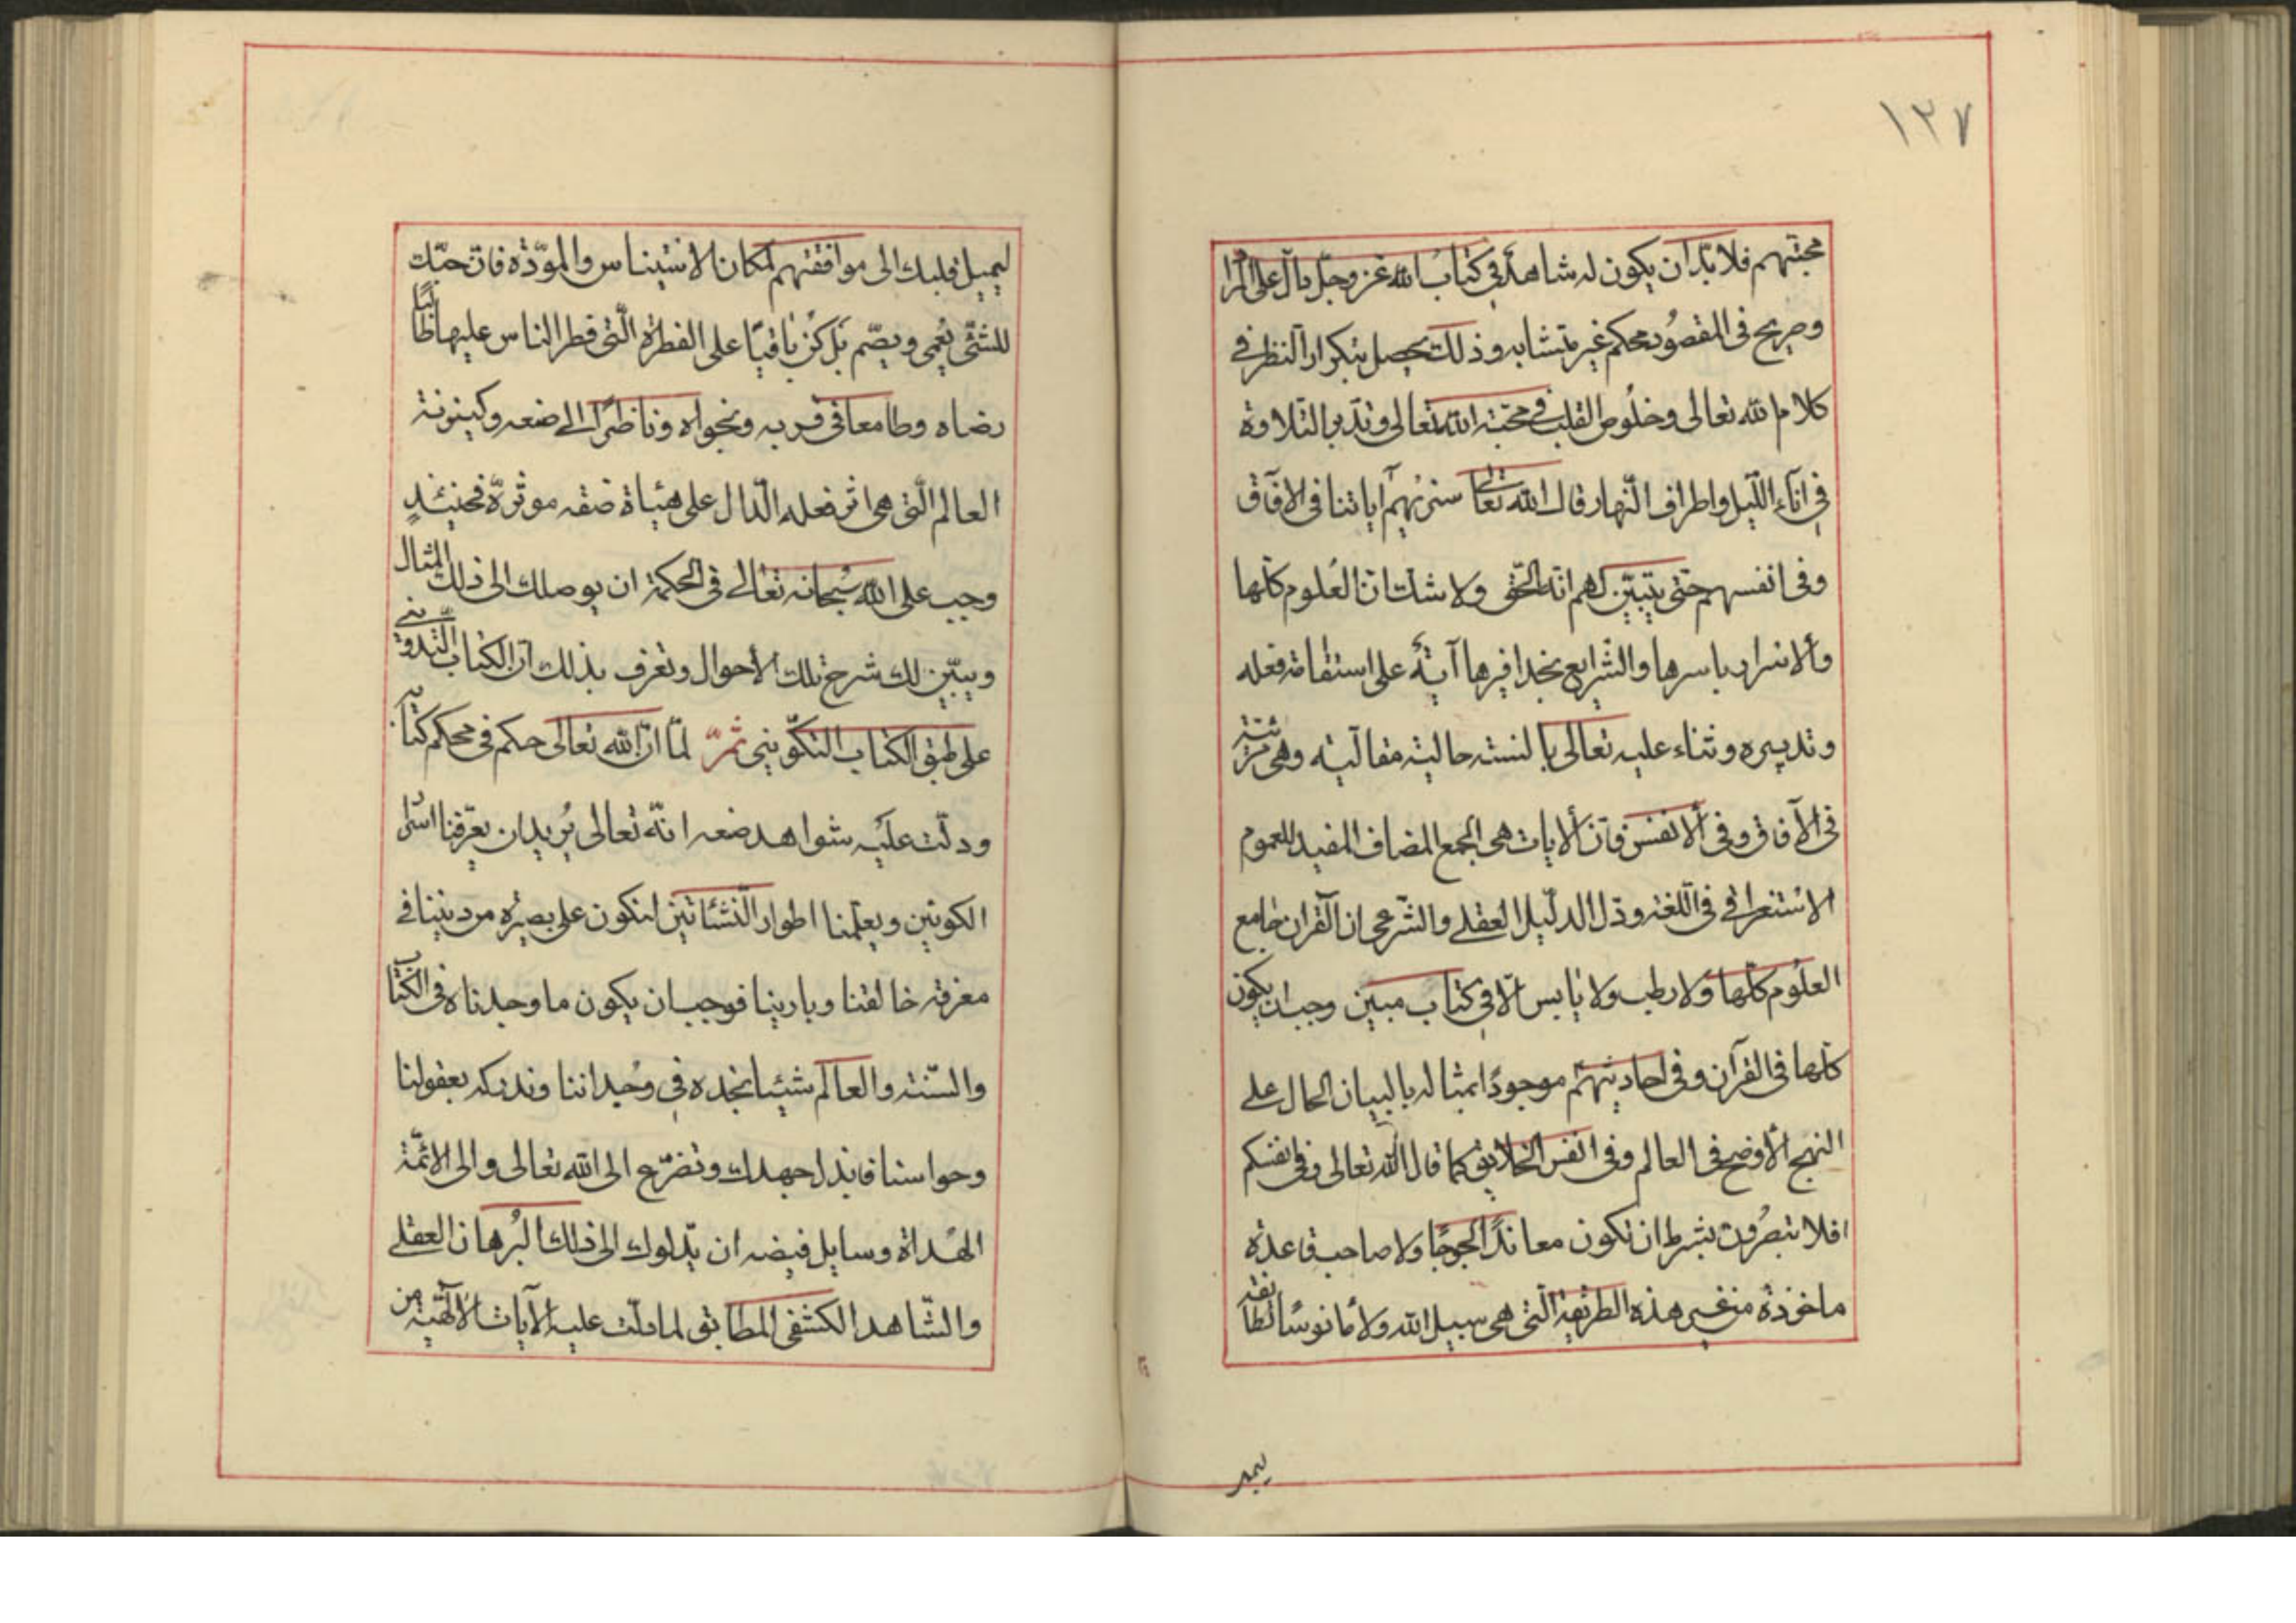 ١٣٧
محبتهم فلا بدّ ان يكون له شاهد فى كتاب الله عز وجل دالّ على المرا
وصريح فى المقصود محكم غير متشابه وذلك يحصل بتكرار النظر فى
كلام الله تعالى وخلُوص القلب فى محبّة الله تعالى وتدبر التلاوة
فى انآء اللّيل واطراف النّهار قال الله تعالى سنريهم آياتنا فى الافاق
وفى انفسهم حتى يتبيّن لهم انه الحق ولا شك ان العُلوم كلّها
والاسرار باسرها والشرايع بحذافيرها آيةٌ على استقامة فعله
وتدبيره وثناء عليه تعالى بالسنته حالية مقالية وهى مرتبة
فى الآفاق وفى الانفس فان الايات هى الجمع المضاف المفيد للعموم
الاستغراقى فى اللّغة ودل الدّليل العقلى والشّرعى ان القران جامع
العلُوم كلّها ولا رطب ولا يابس الّا فى كتاب مبين وجب ان يكون
كلّها فى القرآن وفى احاديثهم موجودًا بمثاله بالبيان الحال على
النهج الاوضح فى العالم وفى انفس الخلايق كما قال الله تعالى وفى انفسكم
افلا تبصرُون بشرط ان تكون معاندًا لجوجًا ولا صاحب قاعدة
ماخوذة من غير هذه الطريقة الّتى هى سبيل الله ولا مانوسًا لطائفة
ليميل
ليميل قلبك الى موافقتهم لمكان الاستيناس والموّدة فان حبّك
للشئ يُعمى ويصّم بَل كن باقيًا على الفطرة الّتى فطر الناس عليها طالبًا
رضاه وطامعا فى قربه ونجواه وناظرًا الى صنعه وكينونة
العالم الّتى هى اثر فعله الدّال على هيأة صفة موثرة فحينئذٍ
وجب على الله سُبحانه تعالى فى الحكمة ان يوصلك الى ذلك المثال
ويبيّن لك شرح تلك الأحوال وتعرف بذلك انّ الكتاب التّدوينى
على طبق الكتاب التكوّينى ثمّ لمّا انّ الله تعالى حكم فى محكم كتابه
ودلّت عليه شواهد صنعه انّه تعالى يُريد ان يعرّفنا اسرار
الكونين ويعلّمنا اطوار النّشئاتين لنكون على بصيرة من ديننا فى
معرفة خالقنا وبارينا فوجب ان يكون ما وجدناه فى الكتاب
والسّنة والعالم شيئا نجده فى وُجداننا وندركه بعقولنا
وحواسنا فابذل جهدك وتضرّع الى الله تعالى والى الائمّة
الهُداة وسايل فيضه ان يدّلوك الى ذلك البُرهان العقلى
والشّاهد الكشفى المطابق لما دلّت عليه الآيات الآلهيّة من